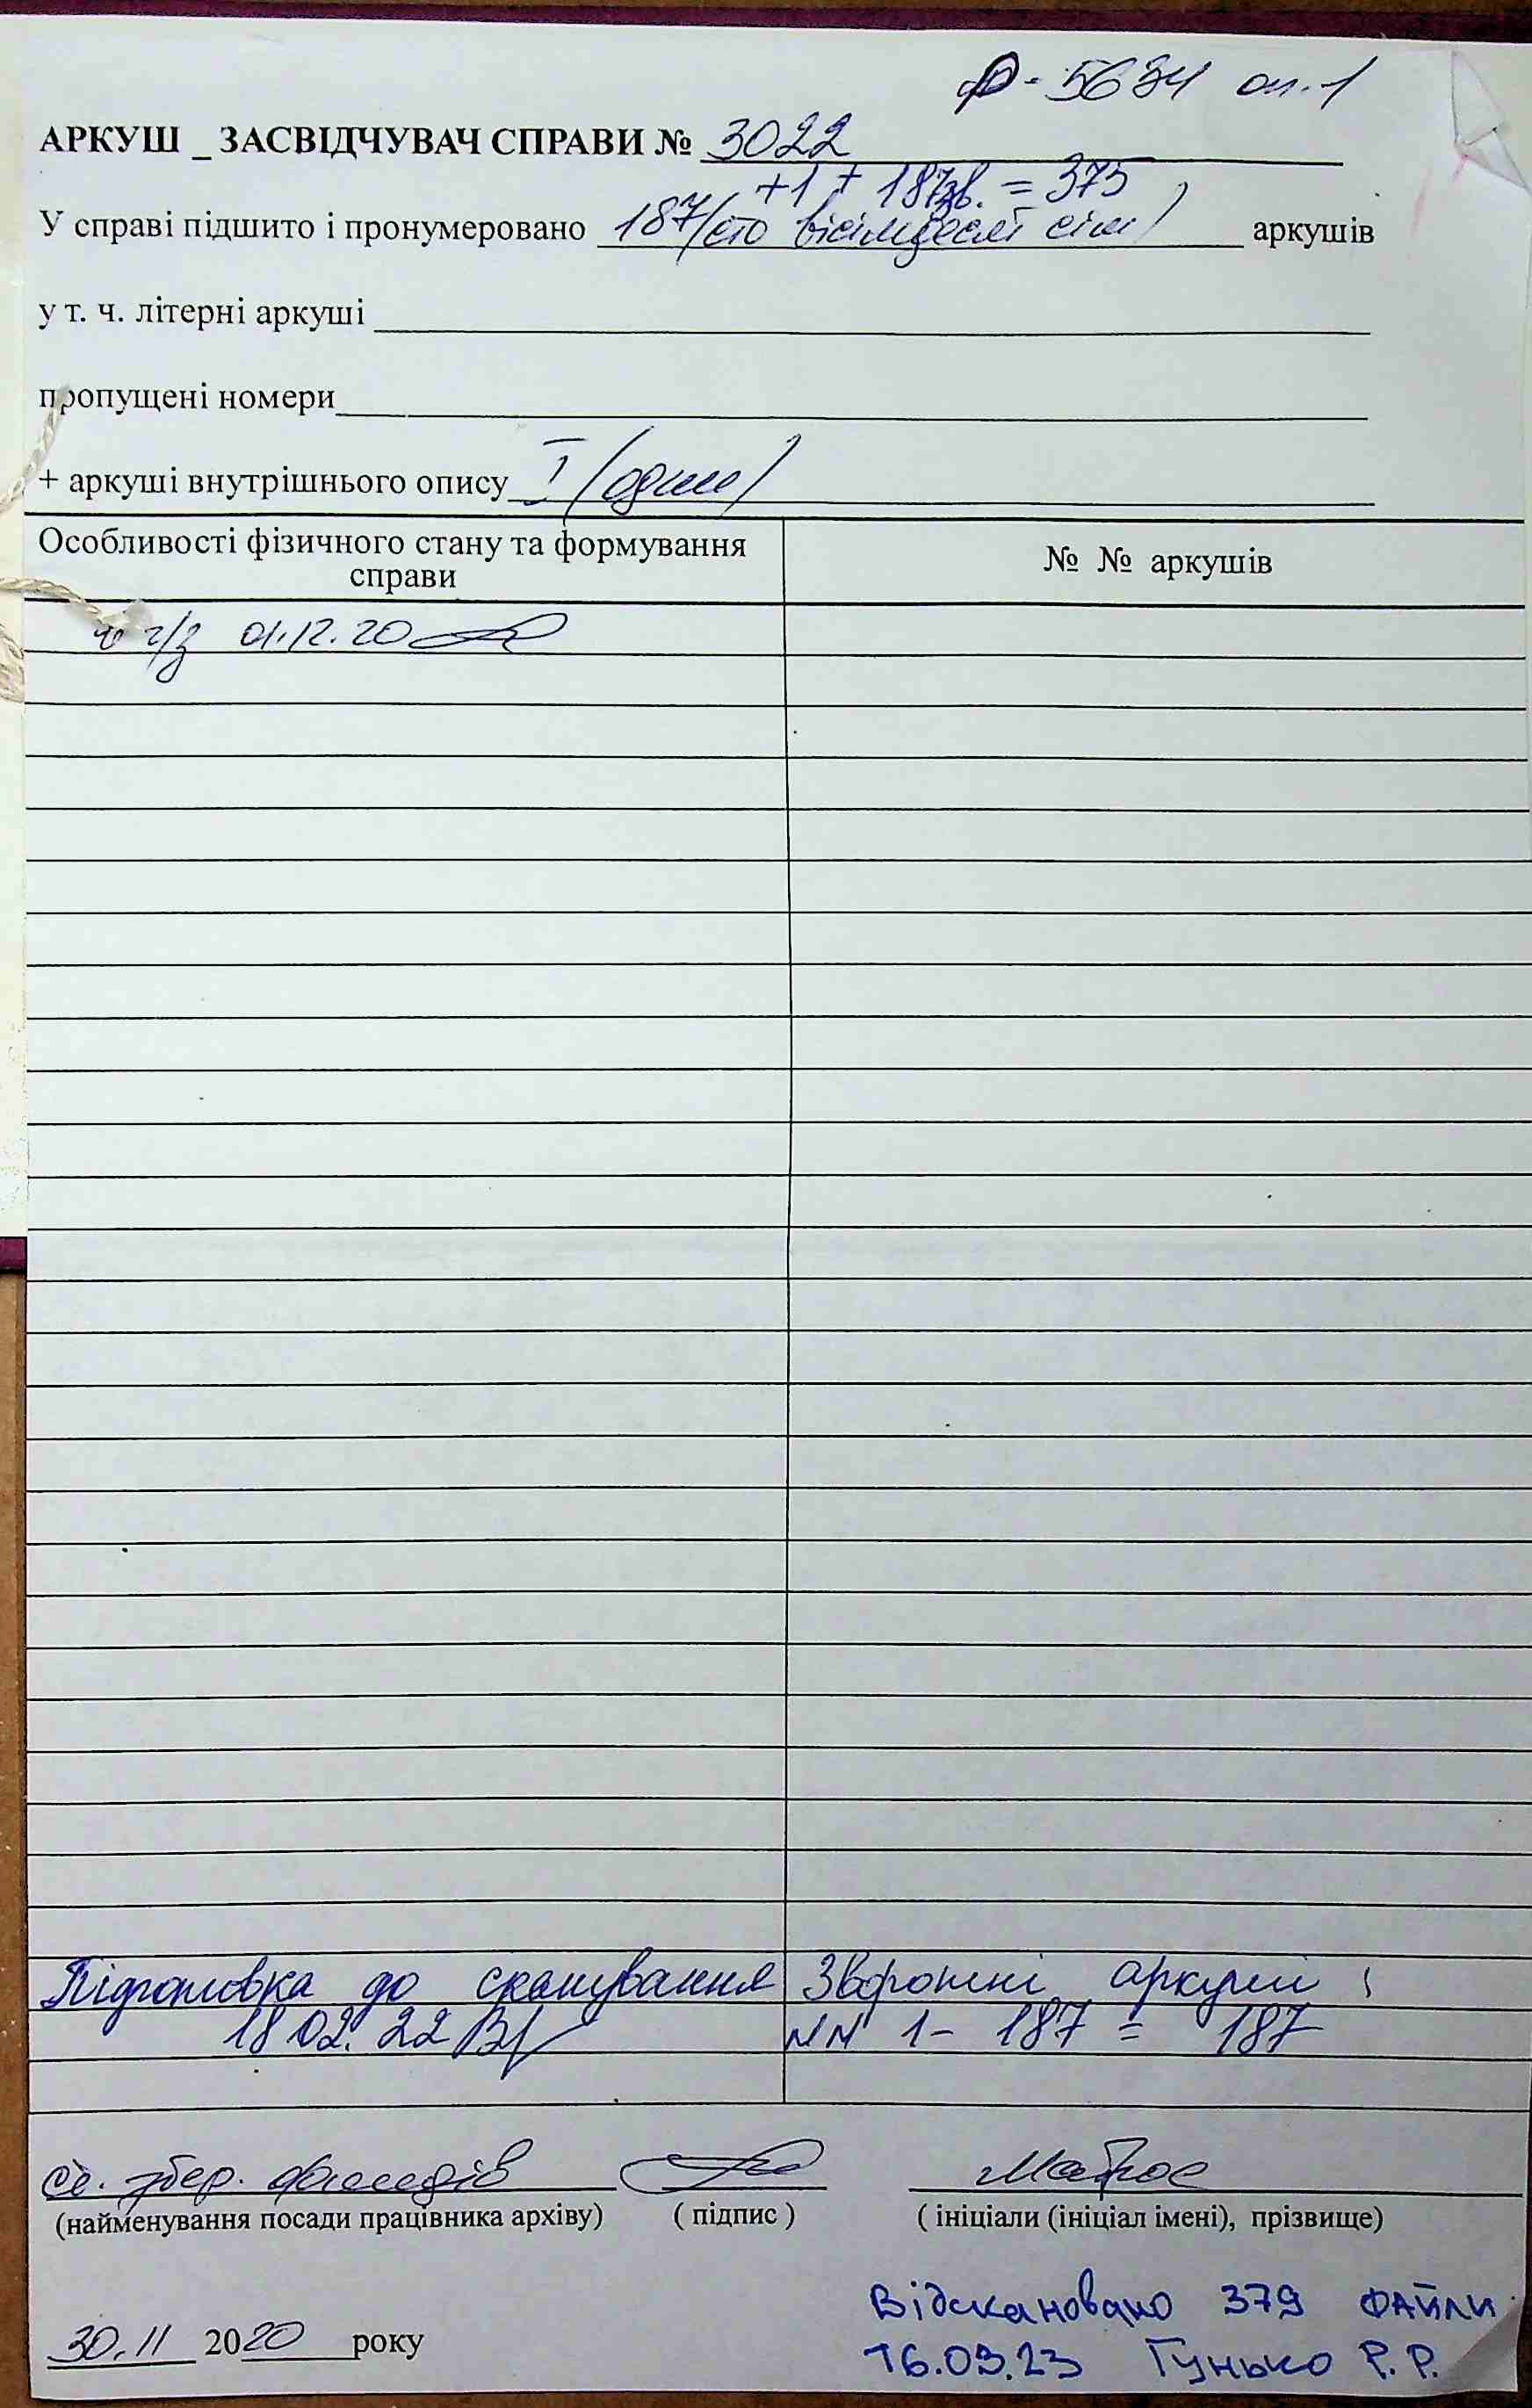 Ф-5634 оп.1
АРКУШ _ ЗАСВІДЧУВАЧ СПРАВИ № 3022
+1 + 187зв. = 375
У справі підшито і пронумеровано 187/сто вісімдесят сім/ аркушів
у т. ч. літерні аркуші
пропущені номери
+ аркуші внутрішнього опису I /один/
Особливості фізичного стану та формування справи
№ № аркушів
01.12.20
Підготовка до сканування
18.02.22
Зворотні аркуші:
NN 1- 187 = 187
збер. фондів
Матрос
(найменування посади працівника архіву) ( підпис ) ( ініціали (ініціал імені), прізвище)
30.11 2020 року
Відскановано 379 ФАЙЛИ
16.03.23 Гунько Р.Р.